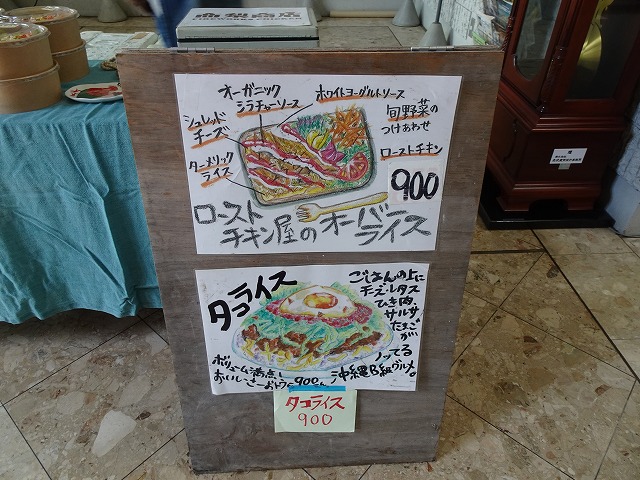 オーガニック
シラチャーソース
ホワイトヨーグルトソース
シュレッド
チーズ
旬野菜の
つけあわせ
ターメリック
ライス
ローストチキン
900
ロースト
チキン屋のオーバー
ライス
タコライス
ごはんの上に
チーズ・レタス
ひき肉、
サルサ
たまごが
ノッてる
沖縄B級グルメ。
ボリューム満点!
タコライス
900